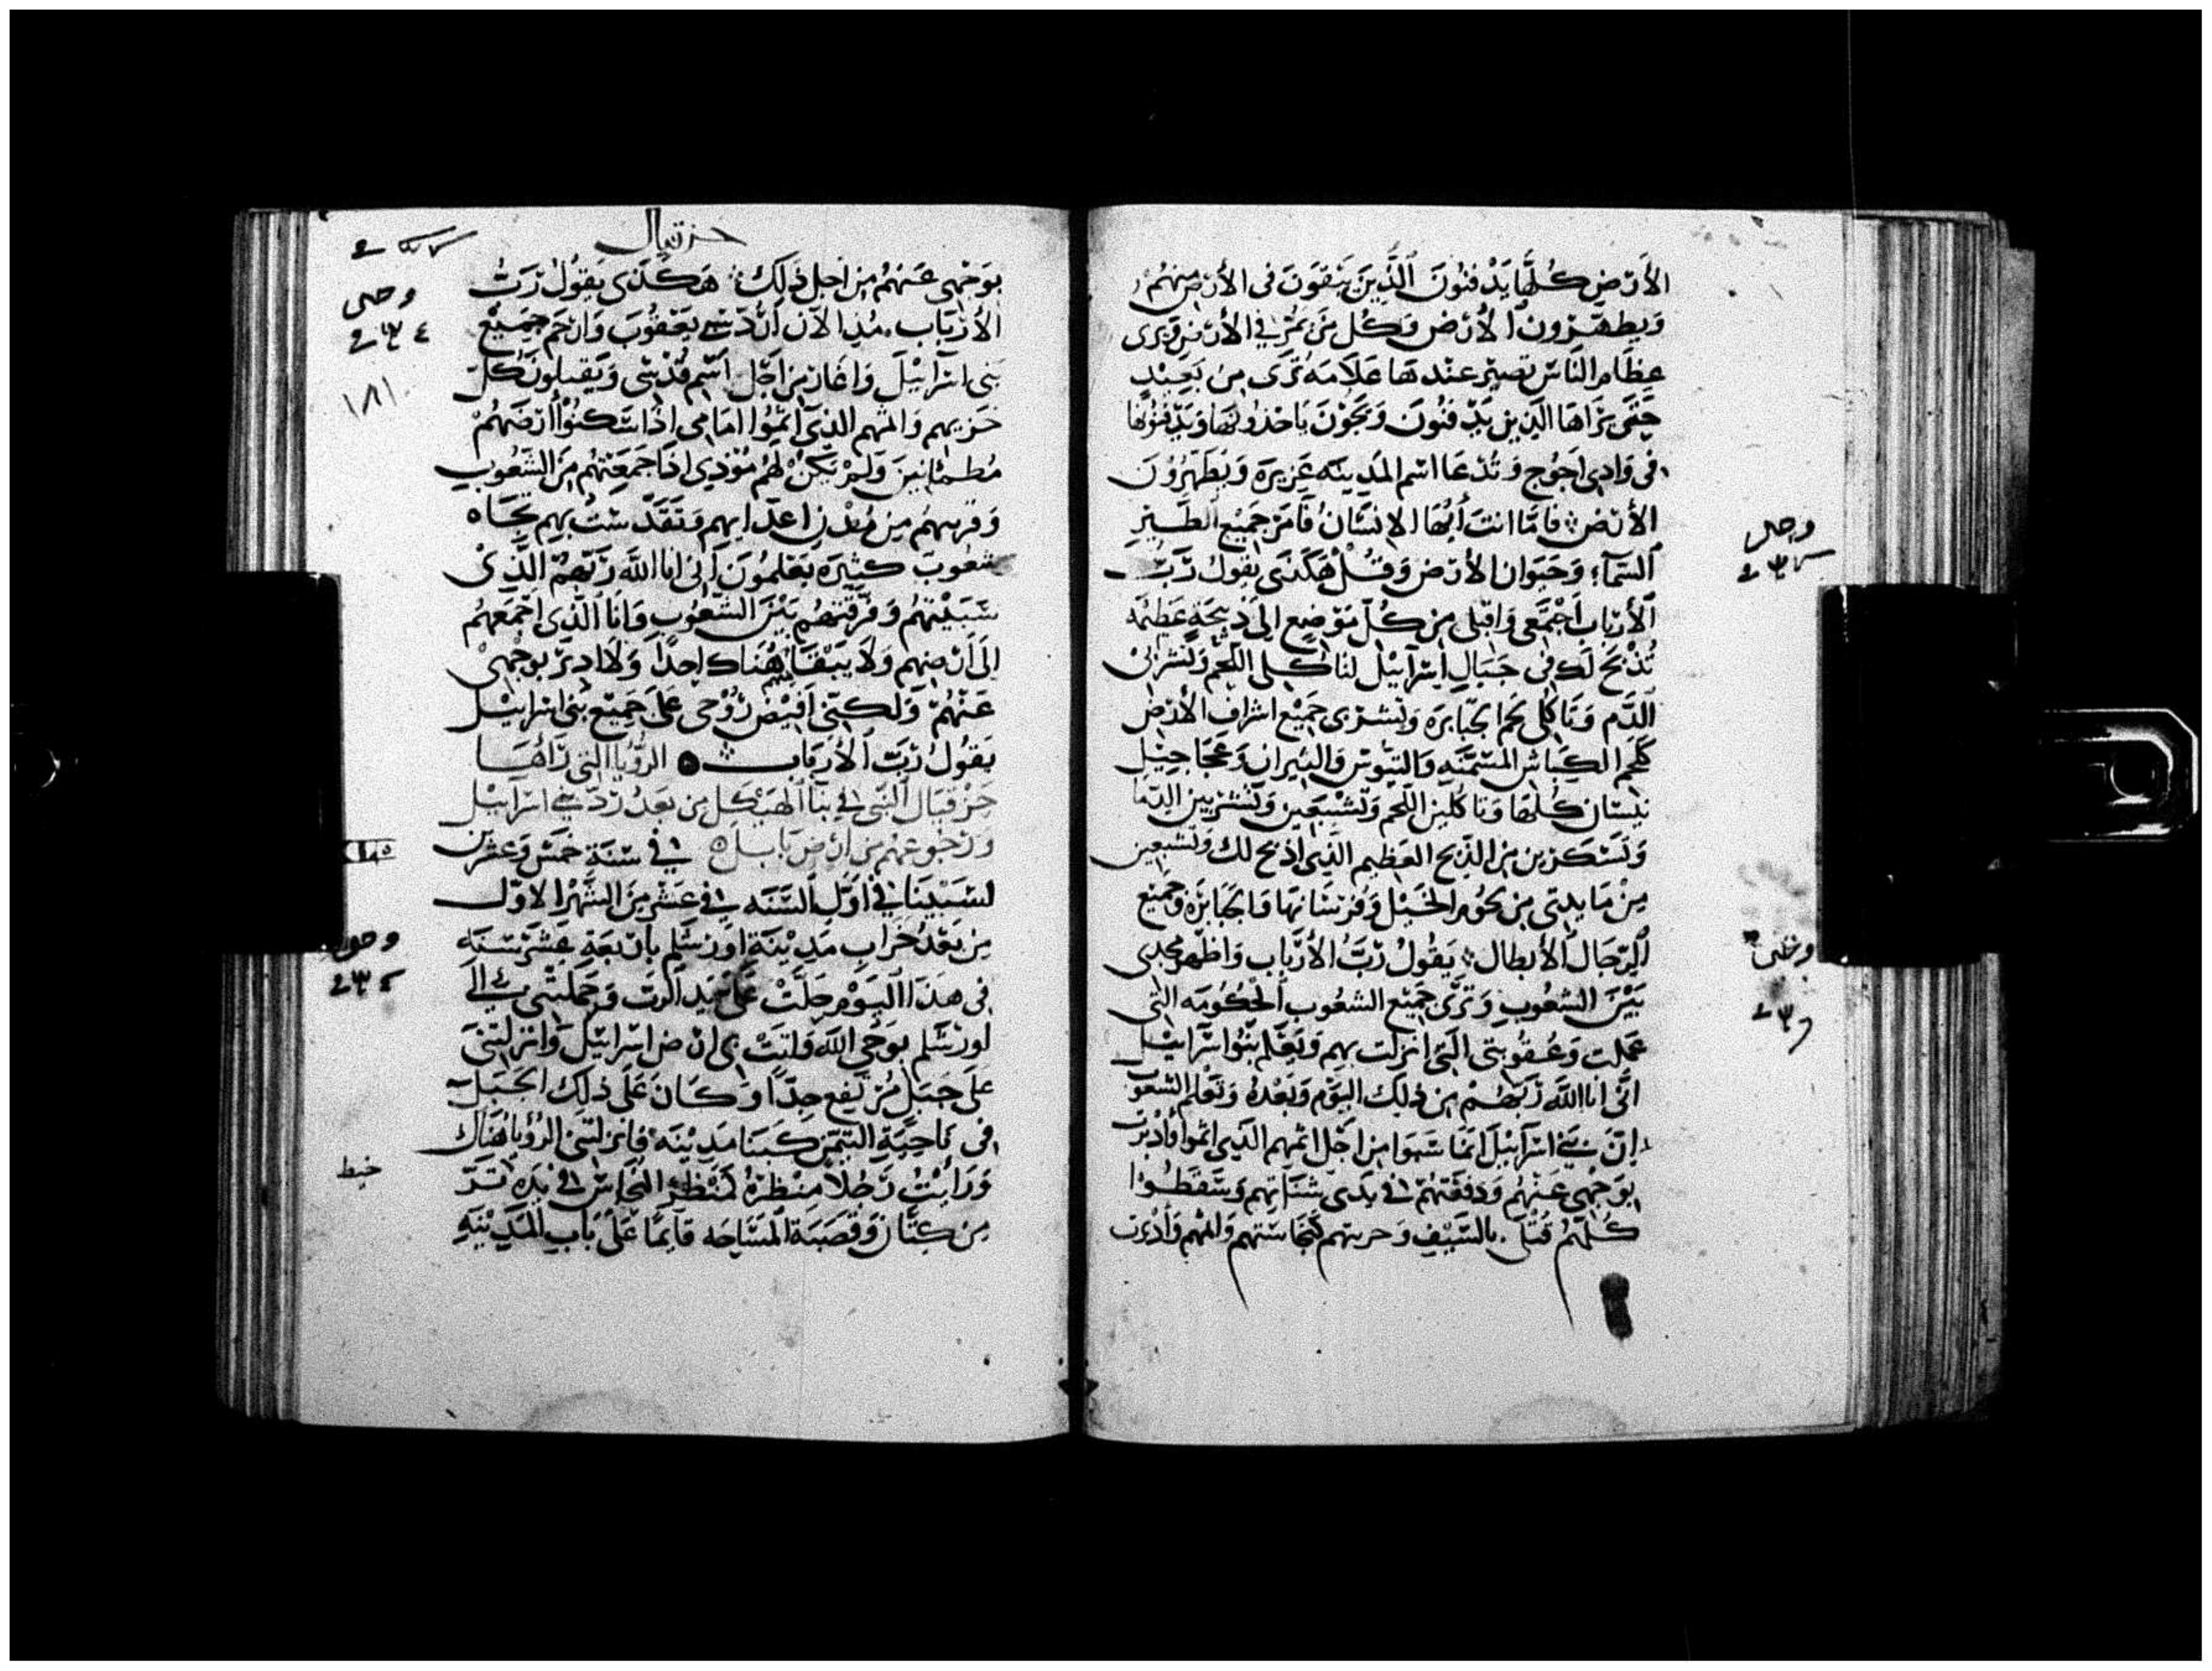 الأَرْضِ كُلَّهَا يَدْفنُونَ الَّذِينَ يَبْقَوْنَ فى الأرْض مِنهُمْ
وَيطهّرون الأرْض وَكُل مَنْ يَمُرّ فى الأرْض وَيرى
عِظَام النَّاسْ تصيرْ عندهَا عَلَامَة تُرَى مِنْ بَعِيْدٍ
حَتّى يَرَاهَا الّذِين يَدْفنُونَ وَيَجُوْنَ يَاخذونهَا وَيَدْفنُونَهَا
فى وَادى اجُوج وَتُدْعَا اسْم المَدِينَه غَزِيرَه وَيُطَهّرُوْنَ
الأرْضْ فامّا انتَ أَيُّهَا الانسَانُ فَامُرْ جَمِيْع الطّيْرِ
السّمآءِ وَحَيَوان الأرْض وَقُلْ هَكَذَى يَقُولُ رَبُّ
الأرْبَاب اَجْتَمَعى وَاقبَلى مِن كُلّ مَوْضِعٍ الى ذَبِيْحَةٍ عَظِيْمَه
تُذْبَحَ لَك فى جَبَالِ اسْرَآئيْل لتَاكلى اللحْم وَتَشْرَبىْ
الدَّم وَتَاكلى لحم الجبابرَه وَتشربى جَمِيْع اشرَاف الأرْض
كلحم الكِبَاش المُسَمّنَه وَالتيُوسْ وَالثيرانِ وَعجَاجِيْل
بَيْسَان كُلّهَا وَتَاكُلين اللحْم وَتَشْبَعين وَتَشْربين الدّمَا
وَتَسْكرين من الذّبح العَظيم الّذِى اذبح لك وَتَشبعين
مِنْ مَا يدتى من لحُوم الخَيْل وَفرسَانهَا وَالجَبَابرَه وَجَميْع
الرّجَال الأبطال يَقُولْ رَبُّ الأرْبَاب وَاظهر مجدى
بَيْنَ الشعُوبِ وَتَرَى جَمِيْع الشعُوب الحُكُومَه التّى
عَملت وَعُقُوبتى الّتى انزلت بهم وَيَعْلم بَنُوا اسْرَآئيْل
انّى انَا اللَّه رَبّهُمْ من ذلِك اليَوْم وَبَعْدهُ وَتَعْلم الشعُوب
انّ بَنىْ اسْرَآئيْل انمَا سُبيَوا من اجْل اثمهم الّذِى اثموا وَأدْبَرْت
بوَجْهى عَنهُمْ وَدفَعْتهُمْ فى يَدى شنَاتهم وَسَقَطُوا
كلّهُمْ قُتلَى بالسّيْفِ وَحربتهم كنجَاسَتهم وَاثمهم وَأدْبرت
وحى
حزقيال
بوَجْهى عَنهُمْ مِن اَجل ذَلِكَ هَكَذَى يَقُولُ رَبُّ
الأرْبَاب مُنذ الآن أرُدّ سَبى يَعْقُوبَ وَارْحَم جَمِيْعْ
بَنى اسْرَائيْلَ وَاغَار مِن اَجْل اسْم قُدْسى وَيَقبلونَ كُلّ
خزيهم وَاثمهم الّذِى اثمُوا امَامى اذَا سَكنُوا أرْضَهُمْ
مُطمئِنينَ وَلَمْ يَكنْ لهُم مُوْذِى اذَا جَمَعتهُم مِنَ الشّعُوبِ
وَقرّبتهُم مِن مُدْن اعدَايهم وَتَقَدّستُ بهم تجَاه
شعُوبَ كثيْرَه يَعْلمُونَ انّى انَا اللَّه رَبّهُمْ الّذِىْ
سَبَيْتهُم وَفَرّقتهُم بَيْنَ الشّعُوب وَانَا الّذى اجْمَعهُمْ
الى ارْضهم وَلا يَبْقَا مِنْهُم هُنَاك احدًا وَلَا ادِيرْ بوَجْهىْ
عَنهُمْ وَلكِنّى اَفيْضْ رُوْحى عَلَى جَمِيْع بَنى اسْرَائيْل
يَقُولُ رَبّ الأرْبَابِ الرّؤيَا التى رَآهَا
حِزْقيَال النّبى فى بنَآ الهَيْكل مِن بَعد رَدّ بَنى اسْرَآئيْل
وَرُجُوعهم مِن ارْض بَابل فى سَنَةِ خَمسْ وَعشرين
لسَبيْنَا فى اَوّلِ السّنَه فى عَشْر مِنَ الشّهْر الاوّل
مِن بَعْد خَرَاب مَدِيْنَة اوْرَشلِم بأرْبَعَة عَشَرْ سَنَه
فى هَذَا اليَوْم حَلّتْ عَلىّ يَد الرّبّ وَحَملتنى الى
اورَشَلم بوَحْى اللّه وَاتتْ بى ارْض اسْرَائيْل وَانزلتنى
عَلى جَبَلٍ مُرْتَفِع جِدًا وَكَانَ عَلَى ذلِك الجبَل
فى نَاحيَةِ التيّمن كبنَا مَدِيْنَه فَانزلتنى الرّؤيَا هُنَاك
وَرَأيْتُ رَجُلًا مَنظرَهُ كمَنْظَرْ النّحَاسْ فى يَدِه
مِن كتّان وَقصَبَة المسَاحَه قآئِمًا عَلى بَاب المدِيْنَهِ
وحى
١٨١
خيط